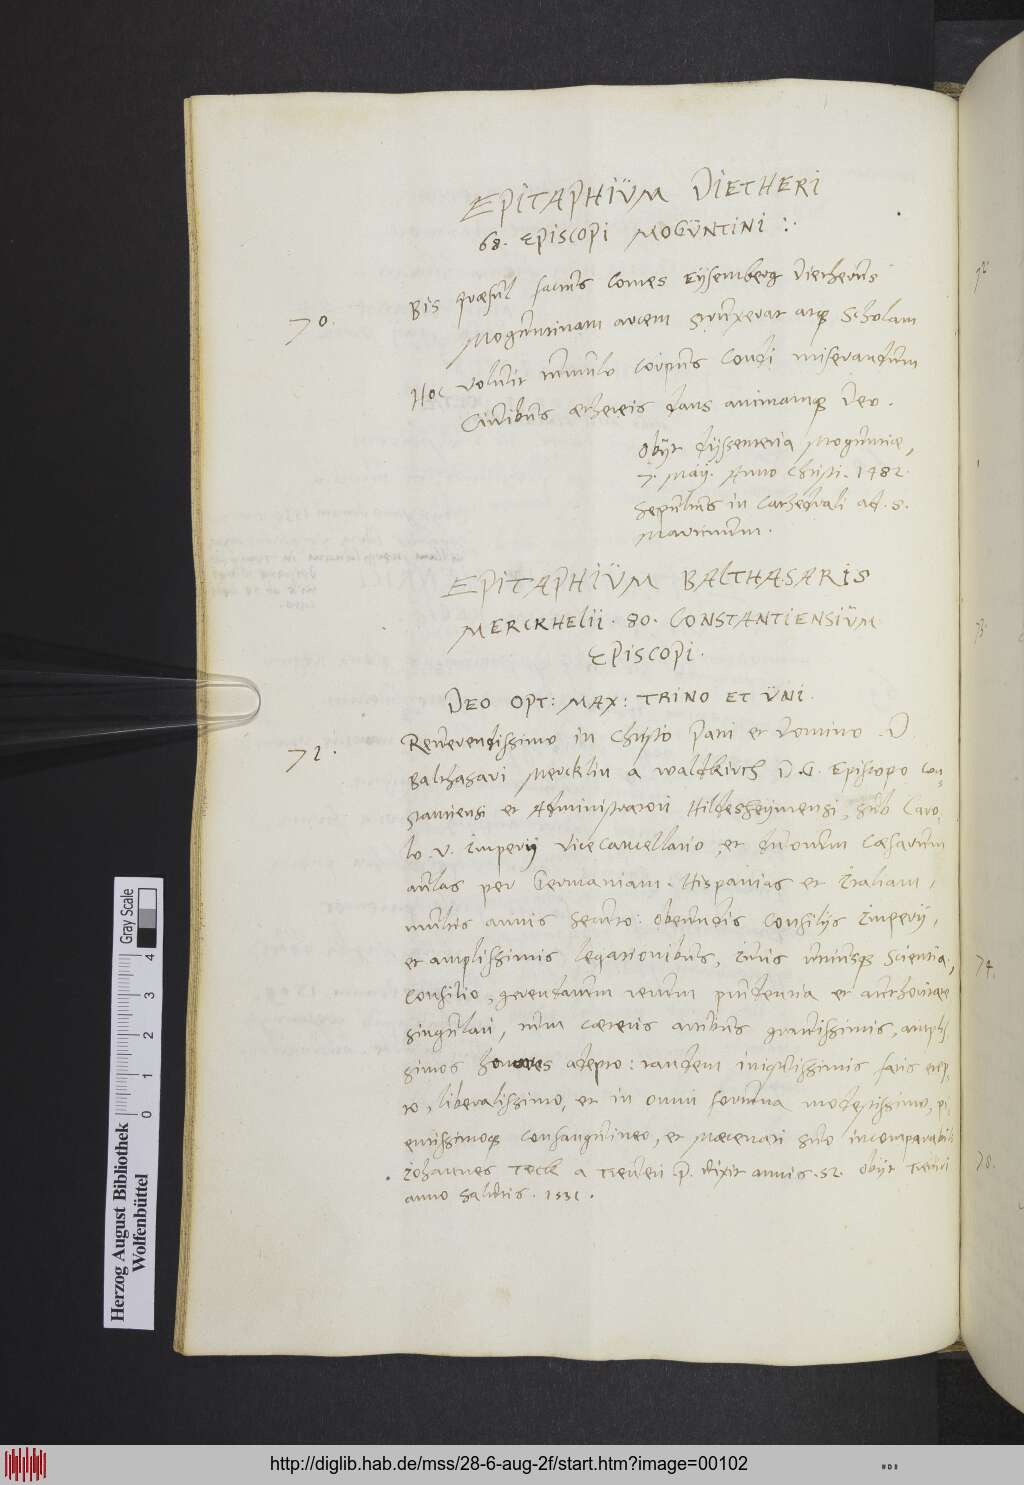 EPITAPHIÜM DIETHERI
68. EPISCOPI MOGÜNTINI :.
70.
Bis præsul factus Comes Eÿsemberg Dietherus
Moguntinam arcem struxerat atq Scholam
Hoc voluit tumulo corpus condi miserandum
Civibus æthereis dans animamq Deo.
Obijt dÿssenteria Moguntiæ,
7. Maij. Anno Christi. 1482.
Sepultus in Cathedrali ad. S.
Martinum.
EPITAPHIÜM BALTHASARIS
MERCKHELII. 80. CONSTANTIENSIÜM
EPISCOPI.
DEO OPT: MAX: TRINO ET ÜNI.
72.
Reverendissimo in Christo Patri et Domino D.
Balthasari Mercklin a Waldkirch D.G. Episcopo Con=
stantiensi et Administratori Hildesheÿmensi, sub Caro,
lo V. Imperij Vicecancellario, et duorum Cæsarum
aulas per Germaniam. Hispanias et Italiam,
multis annis secuto: obeundis consilijs Imperij,
et amplissimis legationibus, Iuris utriusq scientia,
Consilio, gerendarum rerum prudentia et authoritate
singulari, tum cæteris artibus gratissimis, amplis
simos honores adepto: tandem iniquissimis fatis erep,
to, liberalissimo, et in omni fortuna modestissimo, pi,
entissimoq consanguineo, et Mæcenati suo incomparabili
Iohannes a Treveri p. Vixit annis. 52. Obijt Treviri
anno Salutis. 1531.
72
73
74.
75.
Herzog August Bibliothek
Wolfenbüttel
0 1 2 3 4
Gray Scale
http://diglib.hab.de/mss/28-6-aug-2f/start.htm?image=00102